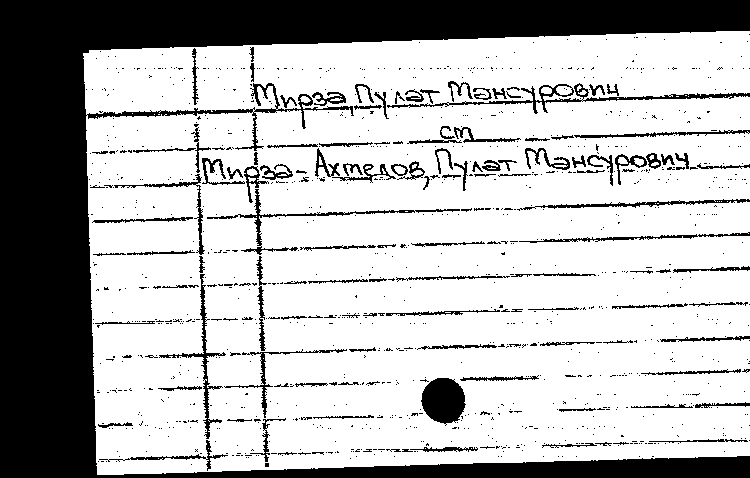 Мирза, Пулат Мансурович
см
Мирза-Ахмедов, Пулат Мансурович